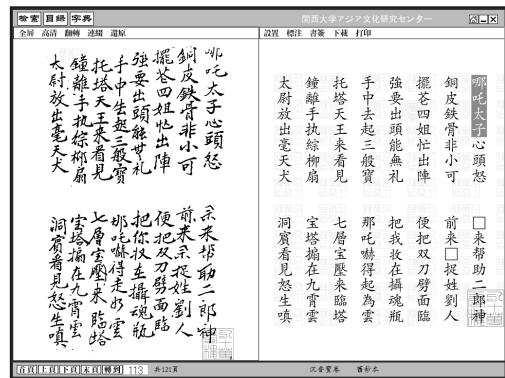 檢索 目錄 字典
関西大学アジア文化研究センター
全屏 高清 翻轉 連綴 還原
設置 標注 書簽 下載 打印
哪吒太子心頭怒
銅皮鉄骨非小可
擺茖四姐忙出陣
強要出頭能無礼
手中生起三般寳
托塔天王来看見
鐘離手执綜柳扇
太尉放出毫天犬
来帮助二郎神
前来捉姓劉人
便把双刀劈面臨
把你收在攝魂瓶
那吒嚇得走如雲
七層宝壓来臨塔
宝塔搧在九霄雲
洞賓看見怒生嗔
哪吒太子心頭怒
銅皮鉄骨非小可
擺茖四姐忙出陣
強要出頭能無礼
手中去起三般寳
托塔天王来看見
鐘離手执綜柳扇
太尉放出毫天犬
□来帮助二郎神
前来□捉姓劉人
便把双刀劈面臨
把我收在攝魂瓶
那吒嚇得起為雲
七層宝壓来臨塔
宝塔搧在九霄雲
洞賓看見怒生嗔
首頁 上頁 下頁 末頁 轉到 113 共121頁
沉香寳卷 舊鈔本